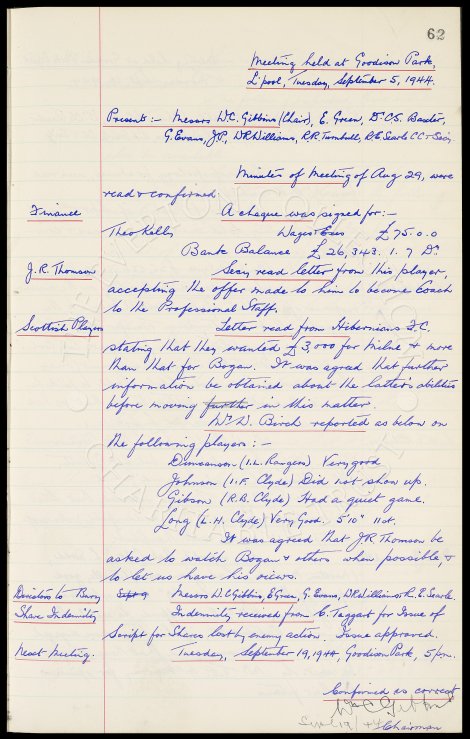 62
Meeting held at Goodison Park,
L'pool, Tuesday, September 5, 1944.
Present:- Messrs W.C. Gibbins (Chair), E. Green, Dr C.S. Baxter,
G. Evans, J.P., D.R. Williams, R.R. Turnbull, R.E. Searle C.C. & Secy
Minutes of Meeting of Aug 29, were
read & confirmed.
Finance A cheque was signed for:-
Theo Kelly Wages Exes £75.0.0
Bank Balance £26,343.1.7 Dr.
J.R. Thomson Secy read letter from this player,
accepting the offer made to him to become Coach
to the Professional Staff.
Scottish Players Letter read from Hibernians F.C.
stating that they wanted £3,000 for Milne & more
than that for Bogan. It was agreed that further
information be obtained about the latter's abilities
before moving further in this matter.
Mr W. Birch reported as below on
the following players:-
(I.L. Rangers) Very good
Johnson (I.F. Clyde) Did not show up.
Gibson (R.B. Clyde) Had a quiet game.
Long (L.H. Clyde) Very Good. 5'10" 11st.
It was agreed that J.R. Thomson be
asked to watch Bogan & others when possible, &
to let us have his views.
Directors to Bury Sept 9 Messrs W.C. Gibbins, E. Green, G. Evans, D.R. Williams & R.E. Searle.
Share Indemnity Indemnity received from C. Taggart for Issue of
Script for Shares lost by enemy action. Issue approved.
Next Meeting. Tuesday, September 19, 1944 Goodison Park, 5 pm.
Confirmed as correct
Wm C. Gibbins
Sept 19/44 Chairman